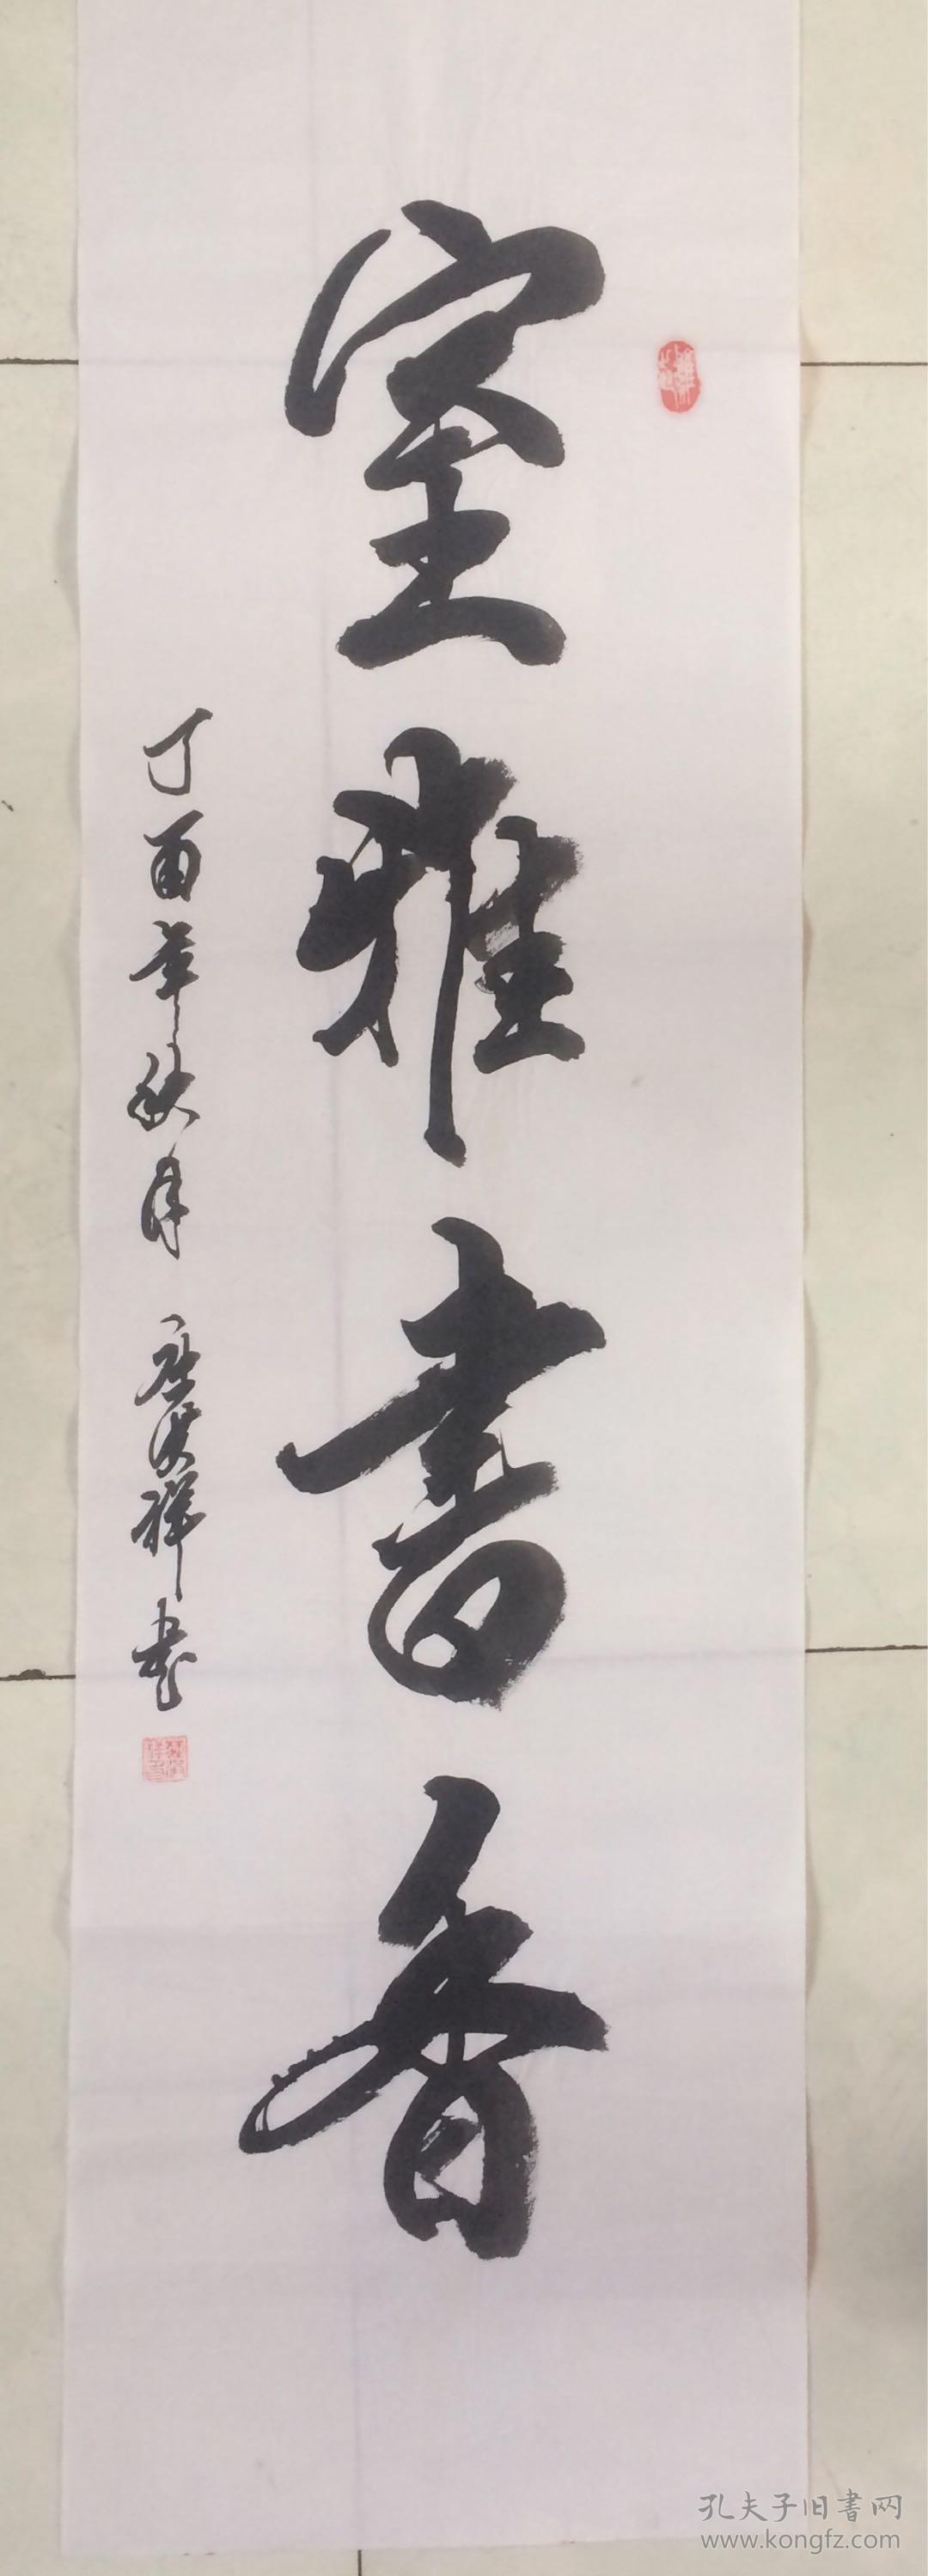 室雅書香
丁酉年秋月 唐洪祥書
孔夫子旧書网
www.kongfz.com